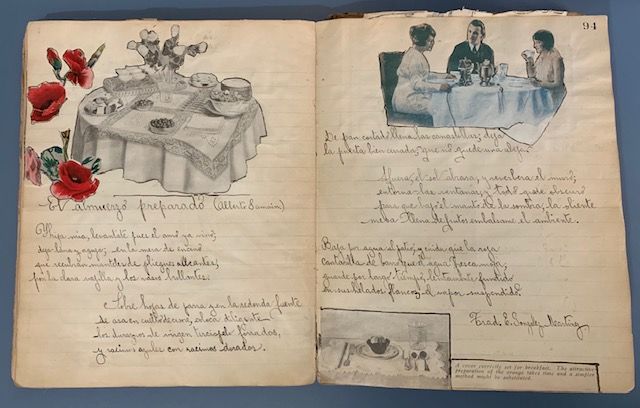 El almuerzo preparado (Alberto Samain)
Hija mía, levántate pues el amo ya vino;
deja lino y agujas; en la mesa de encino
que recubran manteles de pliegues albeantes,
pon la clara vajilla y los vasos brillantes.
Sobre hojas de parra y en la redonda fuente
de asa en cuello de cisne, coloca diligente
los duraznos de virgen terciopelo forrados,
y racimos azules con racimos dorados.
94
De pan cortado llena las canastillas; deja
la puerta bien cerrada, que no quede una abeja.
Afuera el sol abrasa, y reverbera el muro;
entorna las ventanas y todo quede oscuro
para que bajo el manto de la sombra, la oliente
mesa llena de frutos embalsame el ambiente.
Baja por agua al patio; y cuida que la
cantarilla de barro que el agua fresca moja,
guarde por largo tiempo, lentamente fundido
en sus helados flancos, el vapor suspendido.
Trad. E. González Martínez
A cover correctly set for breakfast. The attractive
preparation of the orange takes time and a simpler
method might be substituted.